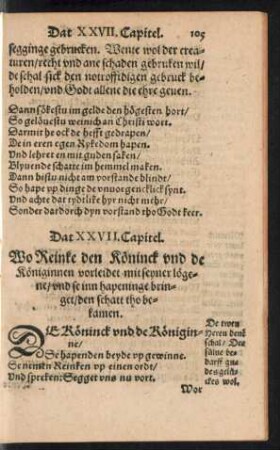 Dat XXVII. Capitel. 105
segginge gebrucken. Wente wol der crea-
turen/recht vnd ane schaden gebruken wil/
de schal sick den notroffidigen gebruck be-
holden/vnd Gode allene die ehre geuen.
Dann sökestu im gelde den högesten hort/
So gelöuestu wenich an Christi wort.
Darmit he ock de hefft gedrapen/
De in eren egen Rykedom hapen.
Vnd lehret en mit guden saken/
Blyuende schatte im hemmel maken.
Dann bistu nicht am vorstande blindt/
So hape vp dinge de vnuorgencklick synt.
Vnd achte dat tydtlike hyr nicht mehr/
Sonder dardorch dyn vorstand tho Gode keer.
Dat XXVII. Capitel.
Wo Reinke den Köninck vnd de
Königinnen vorleidet mit seyner löge-
ne/vnd se inn hapeninge brin-
get/den schatt tho be-
kamen.
DE Köninck vnd de Königin-
ne/
Se hapenden beyde vp gewinne.
Se nemen Reinken vp einen ordt/
Vnd spreken: Segget vns nu vort.
De twen
Heren denet
schal/ Des
sülue be-
darff gu-
des gelü-
ckes wol.
Wor